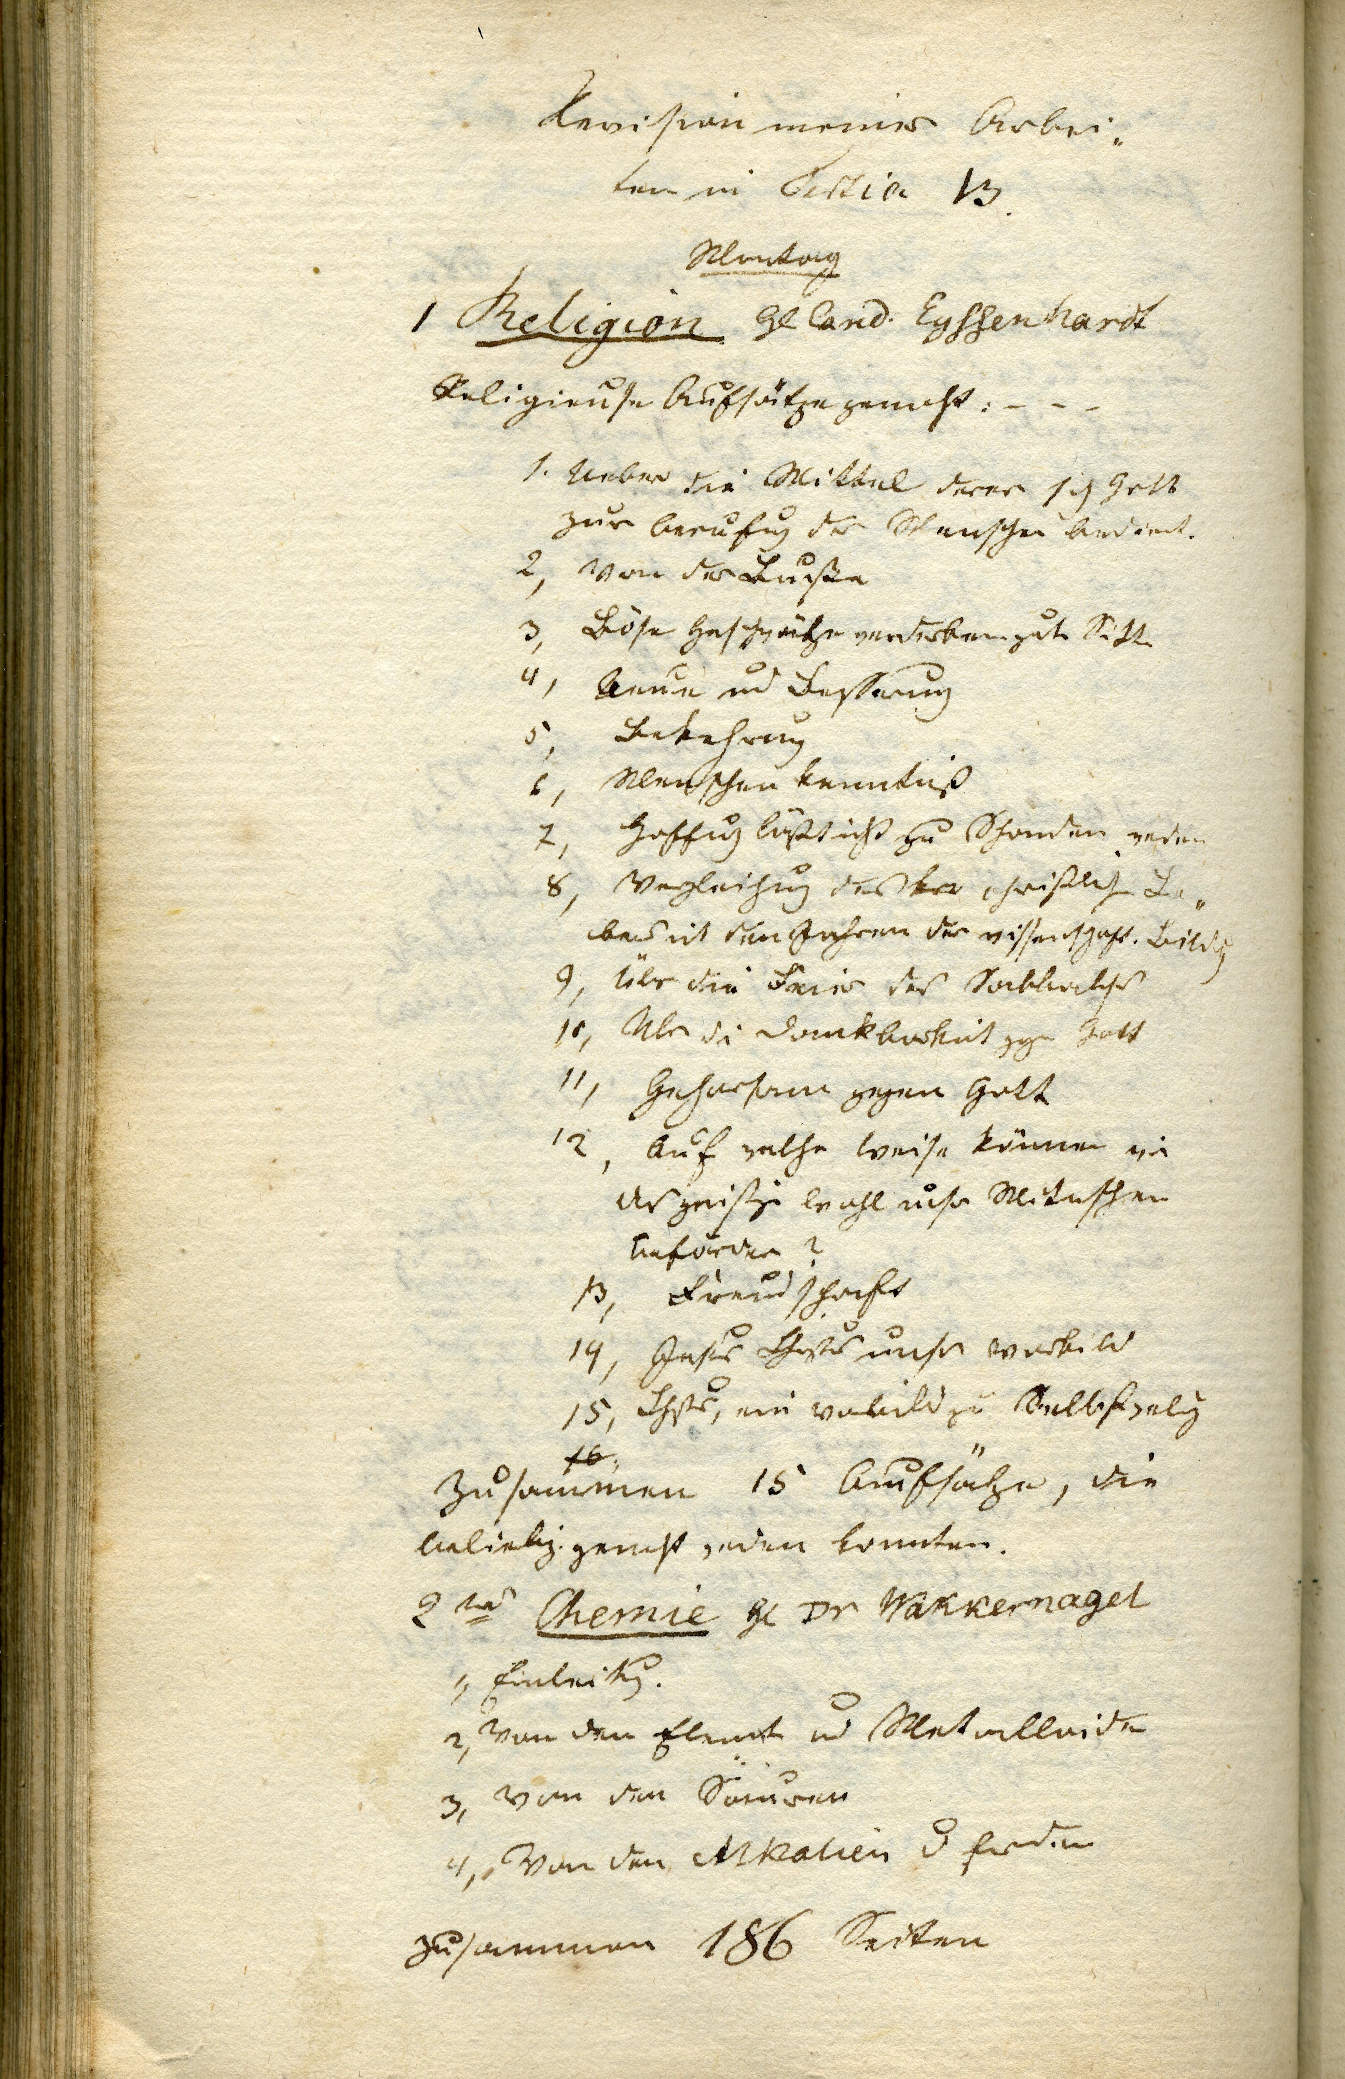 Revision meiner Arbei„
ten in Tertia B.
Montag
1 Religion H Cand. Eyssenhardt
Religieuse Aufsätze gemacht: - - -
1. Ueber die Mittel derer sich Gott
zur berufug der Menschen bedient.
2, Von der Buße
3, Böse Geschwätze verderben gute Sitt
4, Reue und Besserung
5, Bekehrung
6, Menschenkenntniß
7, Hoffnug läßt nicht zu Schanden werden
8, Vergleichug des christlich Le„
bens mit den Jahren der wissenschaft. Bildg
9, Über die Feier des Sabbaths
10, Ueber di Dankbarkeit gegen Gott
11, Gehorsam gegen Gott
12, Auf welche Weise können wir
das geistige wohl unsr Mitmschen
befördern?
13, Freundschaft
14, Jesus Chrstus unser vorbild
15, Chrstus, ein vorbild zu
16,
Zusammen 15 Aufsätze, die
beliebig. gemacht werden konnten.
2 Chemie H Dr Wakkernagel
1, Einleitug.
2, Von den Elemt und Metalloide
3, Von den Säuren
4, Von den Alkalien u Erden
zusammen 186 Seiten